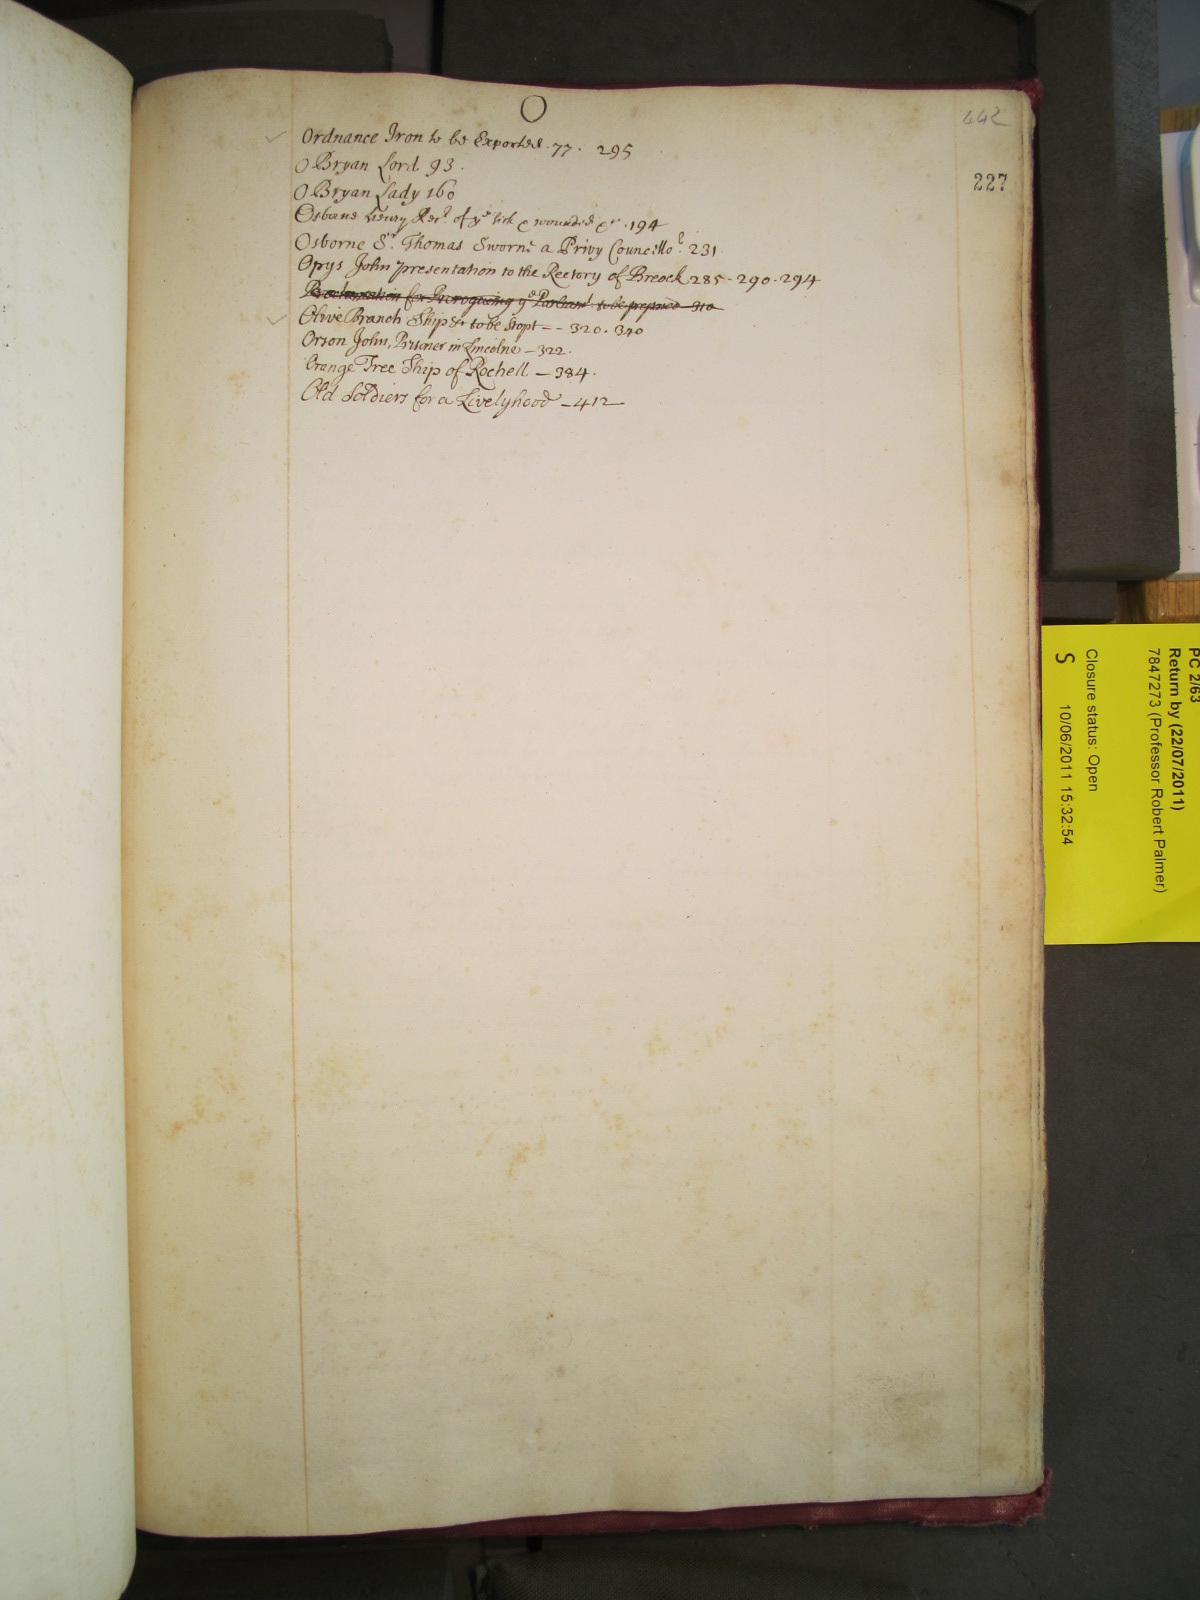 O
442
227
Ordnance Iron to be Exported. 77. 295
O Bryan Lord 93.
O Bryan Lady 160
Osborne Henry Rec.r of ye sick & wounded &c. 194
Osborne Sr. Thomas Sworne a Privy Councello.r 231
Opys John presentation to the Rectory of Breock 285. 290. 294
Proclamation for Proroguing ye Parliamt to be prepared 310
Olive Branch Ship &c to be stopt -- 320. 340
Orson John, Prisoner in Lincolne - 322.
Orange Tree Ship of Rochell - 384.
Old Soldiers for a Livelyhood - 412
PC 2/63
Return by (22/07/2011)
7847273 (Professor Robert Palmer)
Closure status: Open
S 10/06/2011 15:32:54